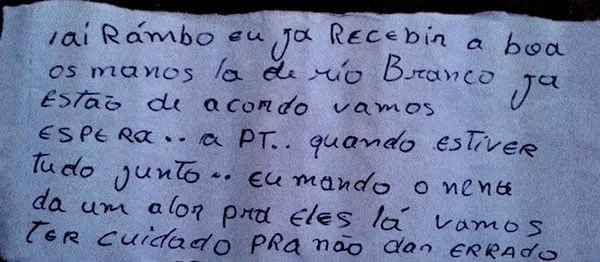 iai Rámbo eu ja Recebir a boa
os manos la de rio Branco ja
Estão de acordo vamos
ESPERA.. a PT.. quando ESTIVER
tudo junto.. EU mando o nena
da um alor pra Eles lá vamos
TER cuidado PRA não dar ERRADO